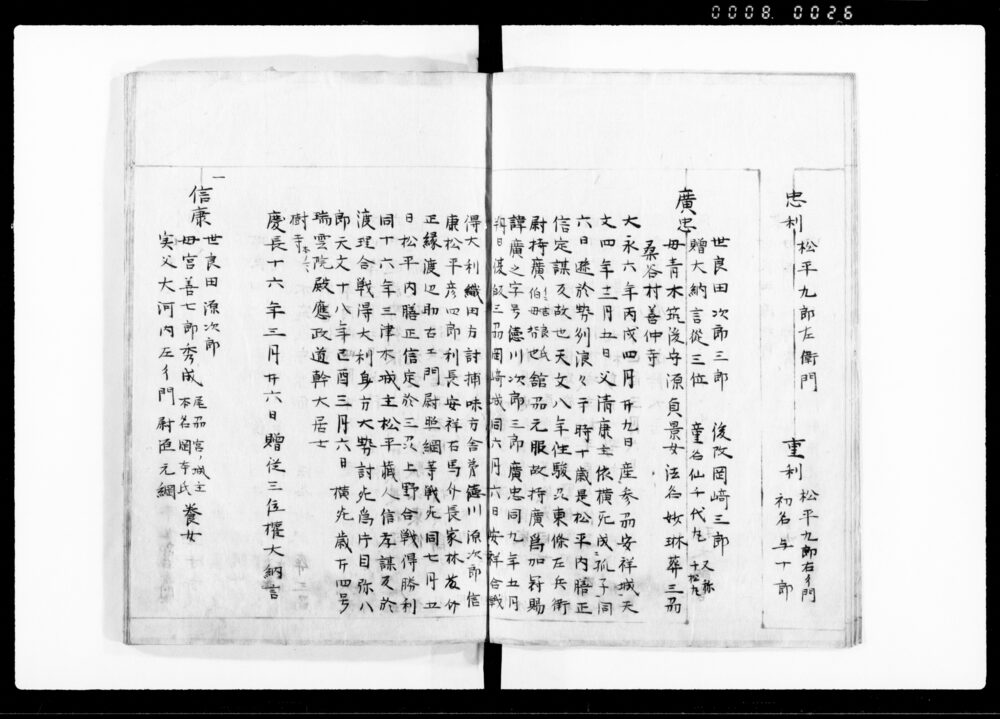 0008. 0026
忠利 松平九郎左衛門
重利 松平九郎右衛門
初名与十郎
廣忠 世良田次郎三郎 後改岡﨑三郎
贈大納言従三位 童名仙千代丸 又弥
千松丸
母青木筑後守源貞景女法名妙琳葬三刕
桑谷村善仲寺
大永六年丙戌四月廿九日産参刕安祥城天
文四年十二月五日父清康主依横死成孤子同
六日遊於勢列浪々于時十歳是松平内膳正
信定謀反故也天文八年住駿刕東條左兵衛
尉持廣舘刕元服故持廣為加冠賜
諱廣之字号德川次郎三郎廣忠同九年五月
朔日復皈三刕岡﨑城同六月六日安祥合戦
得大利織田方討捕味方舎弟德川源次郎信
康松平彦四郎利長安祥右馬介長家林友介
正縁渡辺助右エ門尉照綱等戦死同七月五
日松平内膳正信定於三刕上野合戦得勝利
同十六年三津木城主松平蔵人信孝謀反於
渡理合戦得大利身方大勢討死為片目弥八
郎天文十八年己酉三月六日横死歳廿四号
瑞雲院殿應政道幹大居士
樹寺
慶長十六年三月廿六日贈従三位權大納言
一
信康 世良田源次郎
母宮善七郎秀成 尾刕宮ノ城主
本名岡本氏 養女
実父大河内左エ門尉匡元綱